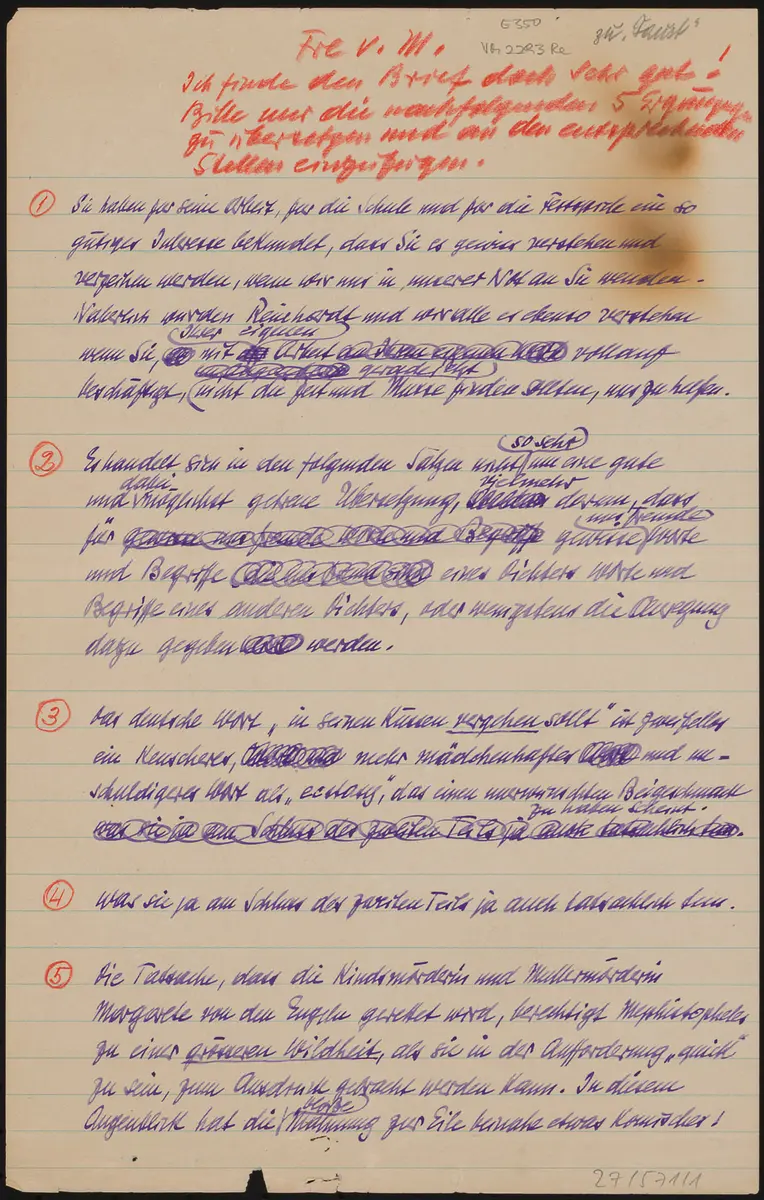 E350
VM 2293 Re
zu "Faust"
Fre v. M.
Ich finde den Brief doch sehr gut!
Bitte nur die nachfolgenden 5 Ergänzungen
zu übersetzen und an den entsprechenden
Stellen einzufügen.
1 Sie haben fur seine Arbeit, fur die Schule und fur die Festspiele ein so
gutiges Interesse bekundet, dass Sie es gewiss verstehen und
verzeihen werden, wenn wir uns in unserer Not an Sie wenden.
Naturlich wurden Reinhardt und wir alle es ebenso verstehen
Ihrer eigenen
wenn Sie, mit Arbeit vollauf
gerade jetzt
beschäftigt, nicht die Zeit und Musse finden sollten, uns zu helfen.
so sehr
2 Es handelt sich in den folgenden Sätzen nicht um eine gute
dabei vielmehr
und möglichst getreue Übersetzung, darum, dass
uns fremde
für gewisse Worte
und Begriffe eines Dichters Worte und
Begriffe eines anderen Dichters, oder wenigstens die Anregung
dazu gegeben werden.
3 Das deutsche Wort "in seinen Küssen vergehen sollt" ist zweifellos
ein Keuscheres, mehr mädchenhaftes und un-
schuldigeres Wort als "ecstasy", das einen unerwünschten Beigeschmack
zu haben scheint.
was sie ja am Schluss des zweiten Teils ja auch tatsächlich tun.
4 was sie ja am Schluss des zweiten Teils ja auch tatsächlich tun.
5 Die Tatsache, dass die Kindsmörderin und Muttermörderin
Margarete von den Engeln gerettet wird, berechtigt Mephistopheles
zu einer grösseren Wildheit, als sie in der Aufforderung "quick"
zu sein, zum Ausdruck gebracht werden kann. In diesem
blosse
Augenblick hat die Mahnung zur Eile beinahe etwas Komisches!
27/57/1/1